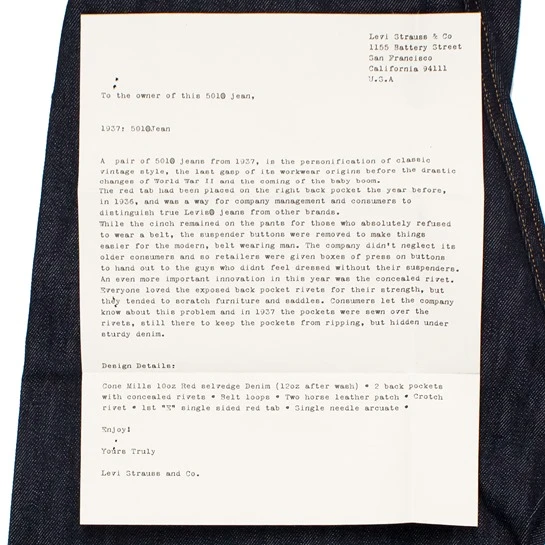 Levi Strauss & Co
1155 Battery Street
San Francisco
California 94111
U.S.A
To the owner of this 501® jean,
1937: 501®Jean
A pair of 501® jeans from 1937, is the personification of classic
vintage style, the last gasp of its workwear origins before the drastic
changes of World War II and the coming of the baby boom.
The red tab had been placed on the right back pocket the year before,
in 1936, and was a way for company management and consumers to
distinguish true Levis® jeans from other brands.
While the cinch remained on the pants for those who absolutely refused
to wear a belt, the suspender buttons were removed to make things
easier for the modern, belt wearing man. The company didn't neglect its
older consumers and so retailers were given boxes of press on buttons
to hand out to the guys who didnt feel dressed without their suspenders.
An even more important innovation in this year was the concealed rivet.
Everyone loved the exposed back pocket rivets for their strength, but
they tended to scratch furniture and saddles. Consumers let the company
know about this problem and in 1937 the pockets were sewn over the
rivets, still there to keep the pockets from ripping, but hidden under
sturdy denim.
Design Details:
Cone Mills 10oz Red selvedge Denim (12oz after wash) * 2 back pockets
with concealed rivets * Belt loops * Two horse leather patch * Crotch
rivet * 1st "E" single sided red tab * Single needle arcuate *
Enjoy!
Yours Truly
Levi Strauss and Co.